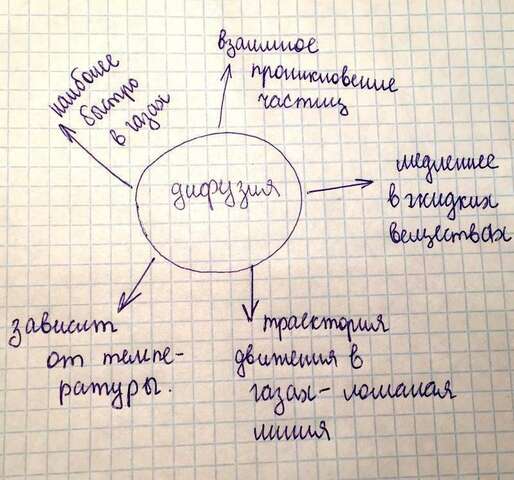 взаимное
проникновение
частиц
наиболее
быстро
в газах
дифузия
медленнее
в жидких
веществах
зависит
от темпе-
ратуры.
траектория
движения в
газах - ломаная
линия